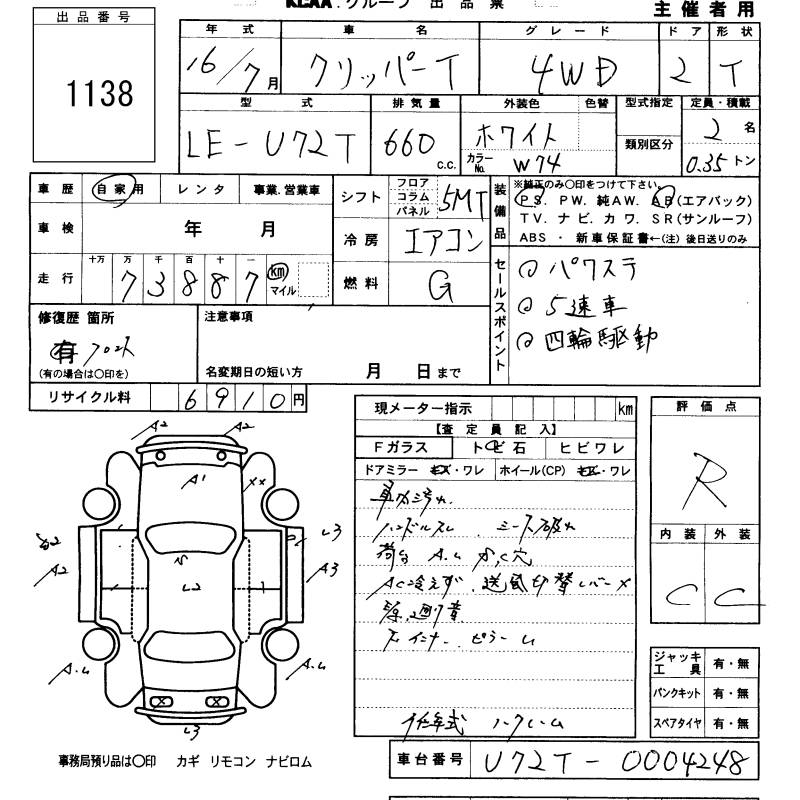 KCAA.グループ 出品票
主催者用
出品番号
1138
年式 車名 グレード ドア 形状
16/7月 クリッパーT 4WD 2 T
型式 排気量 外装色 色替 型式指定 定員・積載
LE-U72T 660 c.c. ホワイト カラーNo. W74 類別区分 2名 0.35トン
車歴 自家用 レンタ 事業.営業車
車検 年 月
走行 十万 万 千 百 十 一
73887 km マイル
シフト フロア コラム パネル 5MT
冷房 エアコン
燃料 G
装備品
※純正のみ○印をつけて下さい。
PS. PW. 純AW. AB(エアバック)
TV. ナビ. カワ. SR(サンルーフ)
ABS ・ 新車保証書←(注) 後日送りのみ
セールスポイント
◎ パワステ
◎ 5速車
◎ 四輪駆動
修復歴 箇所
有 フロント
(有の場合は○印を)
注意事項
名変期日の短い方 月 日まで
リサイクル料 6910円
現メーター指示 km
【査定員記入】
Fガラス トビ石 ヒビワレ
ドアミラー キズ・ワレ ホイール(CP) キズ・ワレ
車内汚れ
ハンドルスレ シート破れ
荷台 穴
AC冷えず. 送風切替レバー×
低年式
評価点
R
内装 外装
C C
A2 A2
A1 XX
L3
A2 A3
L2
L3
ジャッキ 工具 有・無
パンクキット 有・無
スペアタイヤ 有・無
事務局預り品は○印 カギ リモコン ナビロム
車台番号 U72T-0004248